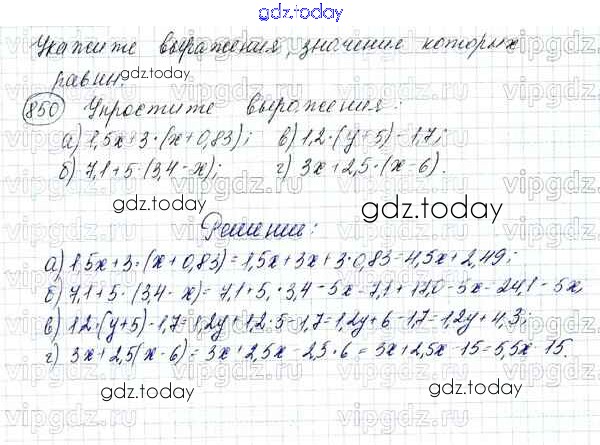 gdz.today
Укажите выражения, значение которых
равны.
gdz.today
850 Упростите выражения:
а) 1,5x+3·(x+0,83); в) 1,2·(y+5)-1,7;
б) 7,1+5·(3,4-x); г) 3x+2,5·(x-6).
gdz.today
gdz.today
Решение:
а) 1,5x+3·(x+0,83)=1,5x+3x+3·0,83=4,5x+2,49;
б) 7,1+5·(3,4-x)=7,1+5·3,4-5x=7,1+17,0-5x=24,1-5x;
в) 1,2·(y+5)-1,7=1,2y+1,2·5-1,7=1,2y+6-1,7=1,2y+4,3;
г) 3x+2,5(x-6)=3x+2,5x-2,5·6=3x+2,5x-15=5,5x-15.
gdz.today
gdz.today
vipgdz.ru